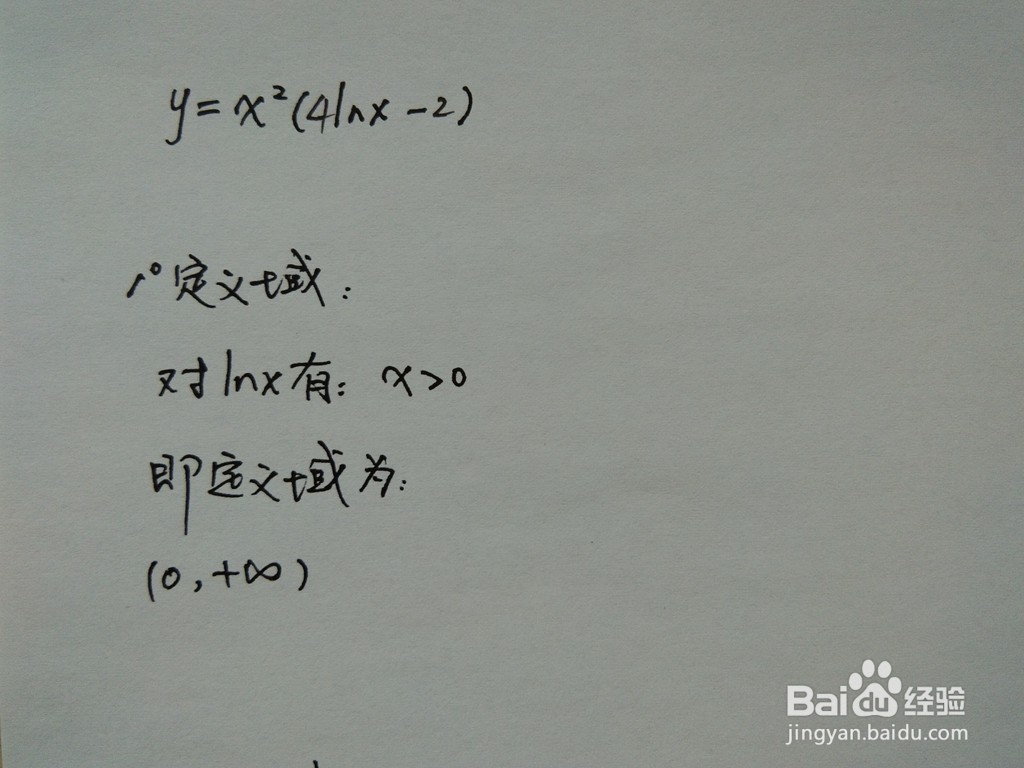 y=x²(4lnx-2)
1°定义域:
对lnx有: x>0
即定义域为:
(0,+∞)
Baidu经验
jingyan.baidu.com